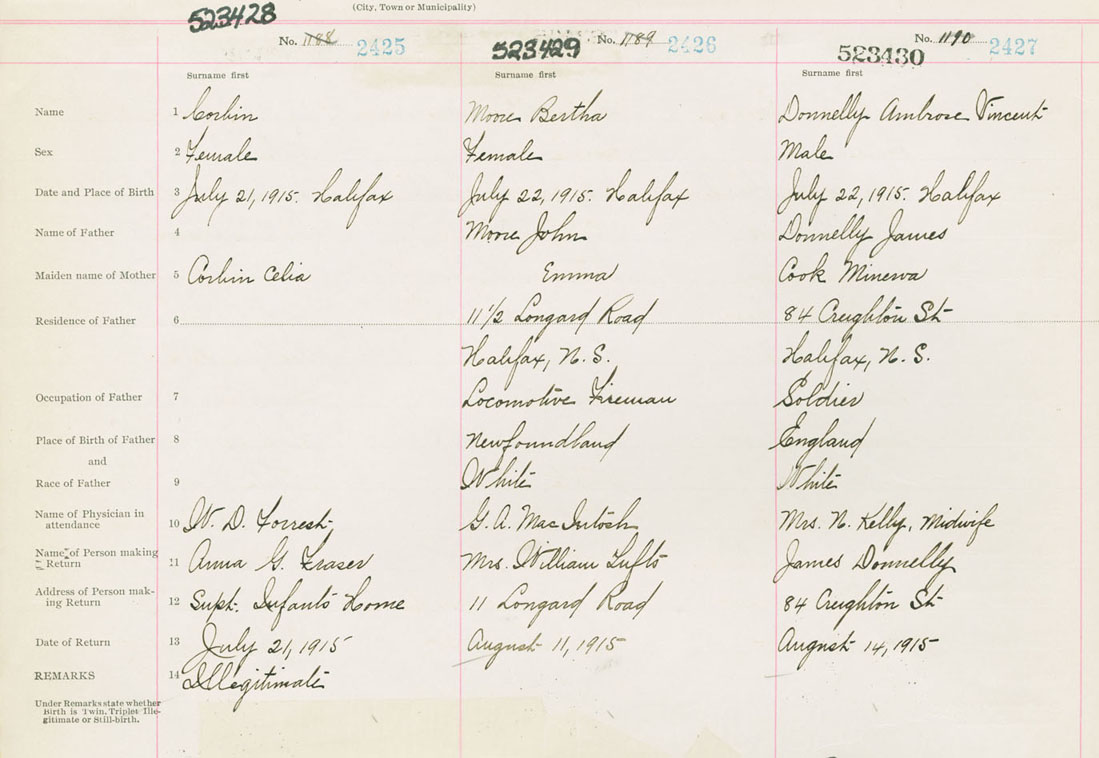 (City, Town or Municipality)
523428
No. 1188 2425
523429
No. 1189 2426
523430
No. 1190 2427
Surname first
Surname first
Surname first
Name 1 Corbin Moore Bertha Donnelly Ambrose Vincent
Sex 2 Female Female Male
Date and Place of Birth 3 July 21, 1915. Halifax July 22, 1915. Halifax July 22, 1915. Halifax
Name of Father 4 Moore John Donnelly James
Maiden name of Mother 5 Corbin Celia Emma Cook Minerva
Residence of Father 6 11 1/2 Longard Road 84 Creighton St
Halifax, N. S. Halifax, N. S.
Occupation of Father 7 Locomotive Fireman Soldier
Place of Birth of Father 8 Newfoundland England
and
Race of Father 9 White White
Name of Physician in
attendance 10 W. D. Forrest G. A. MacIntosh Mrs. N. Kelly, Midwife
Name of Person making
Return 11 Anna G. Fraser Mrs. William Tufts James Donnelly
Address of Person mak-
ing Return 12 Supt. Infants Home 11 Longard Road 84 Creighton St
Date of Return 13 July 21, 1915 August 11, 1915 August 14, 1915
REMARKS 14 Illegitimate
Under Remarks state whether
Birth is Twin, Triplet Ille-
gitimate or Still-birth.